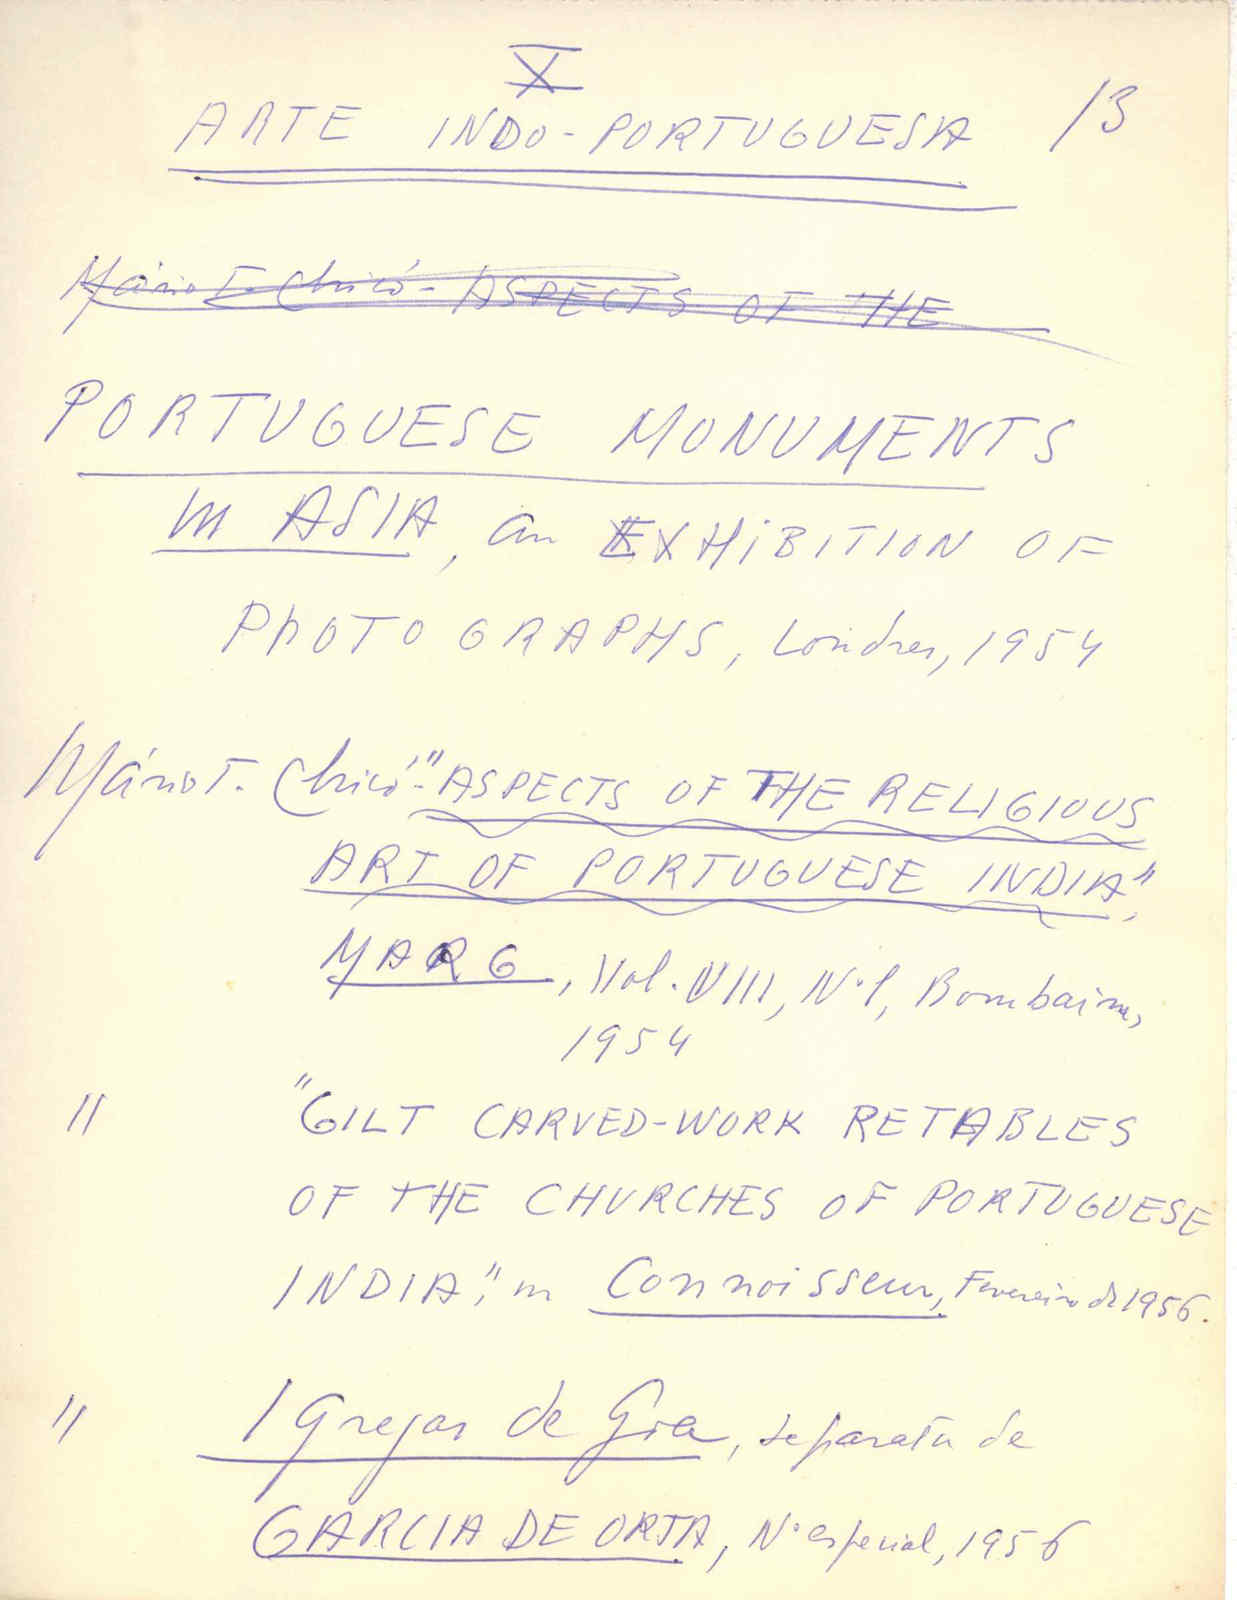 X
ARTE INDO-PORTUGUESA 13
Mário T. Chicó - ASPECTS OF THE
PORTUGUESE MONUMENTS
in ASIA, an EXHIBITION OF
PHOTOGRAPHS, Londres, 1954
Mário T. Chicó - "ASPECTS OF THE RELIGIOUS
ART OF PORTUGUESE INDIA",
MARG, Vol. VIII, Nº 1, Bombaim,
1954
" "GILT CARVED-WORK RETABLES
OF THE CHURCHES OF PORTUGUESE
INDIA", in Connoisseur, Fevereiro de 1956.
" Igrejas de Goa, separata de
GARCIA DE ORTA, Nº especial, 1956